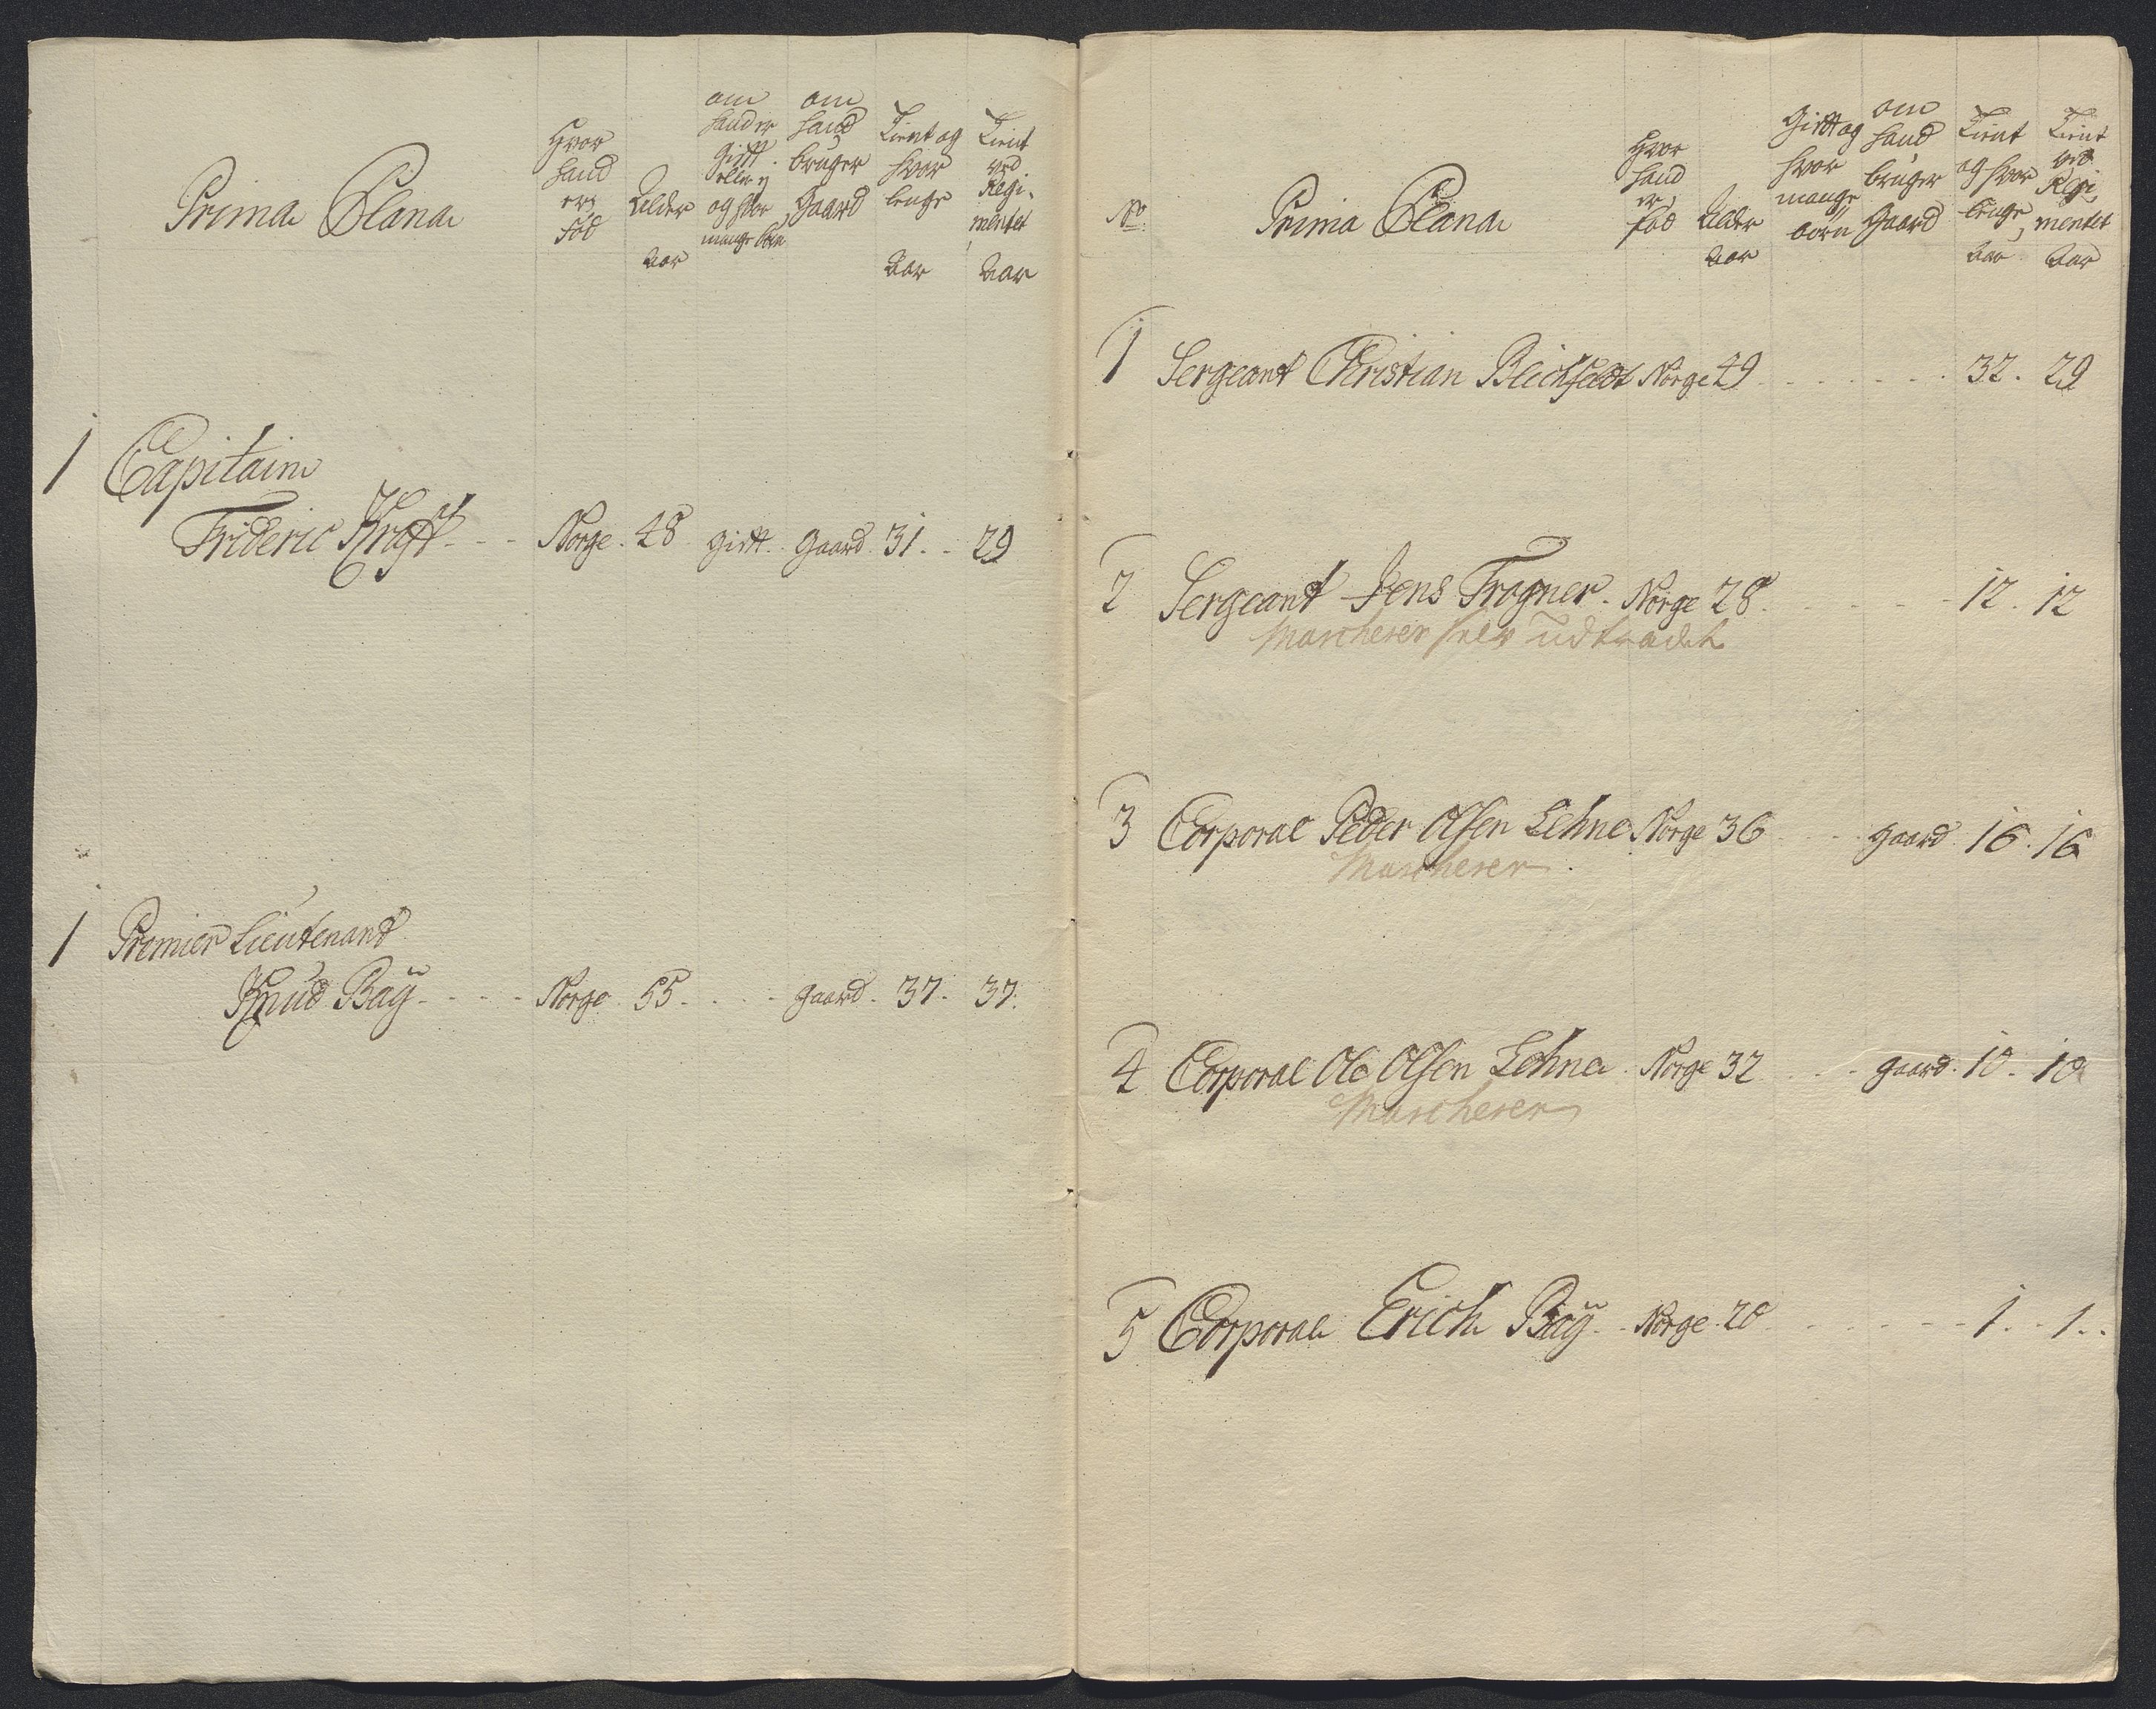 Prima Plana
Hvor hand er Fød
Alder Aar
om hand er Gift eller ej og hvor mange børn
om hand bruger Gaard
Tient og hvor lenge Aar
Tient ved Regimentet Aar
1 Capitain
Frideric Kraft - - - Norge . 48 gift . gaard . 31 . . 29
1 Premier Lieutenant
Knud Baÿ - - - - Norge . 55 . - - - gaard . 37 . 37 .
No Prima Plana
Hvor hand er fød
Alder Aar
Gift og hvor mange børn
om hand bruger Gaard
Tient og hvor lenge Aar
Tient ved Regimentet Aar
1 Sergeant Christian Blichfeldt Norge 49 - - - - - - 32 . 29
2 Sergeant Jens Trogner . Norge 28 . - - - - 12 . 12
Marcherer selv udtradt
3 Corporal Peder Olsen Lehne Norge 36 - - gaard 16 . 16
Marcherer .
4 Corporal Ole Olsen Lehne . Norge 32 - - gaard . 10 . 10
Marcherer
5 Corporal Erich Baÿ . . Norge . 20 - - - - - - 1 . . 1 . .